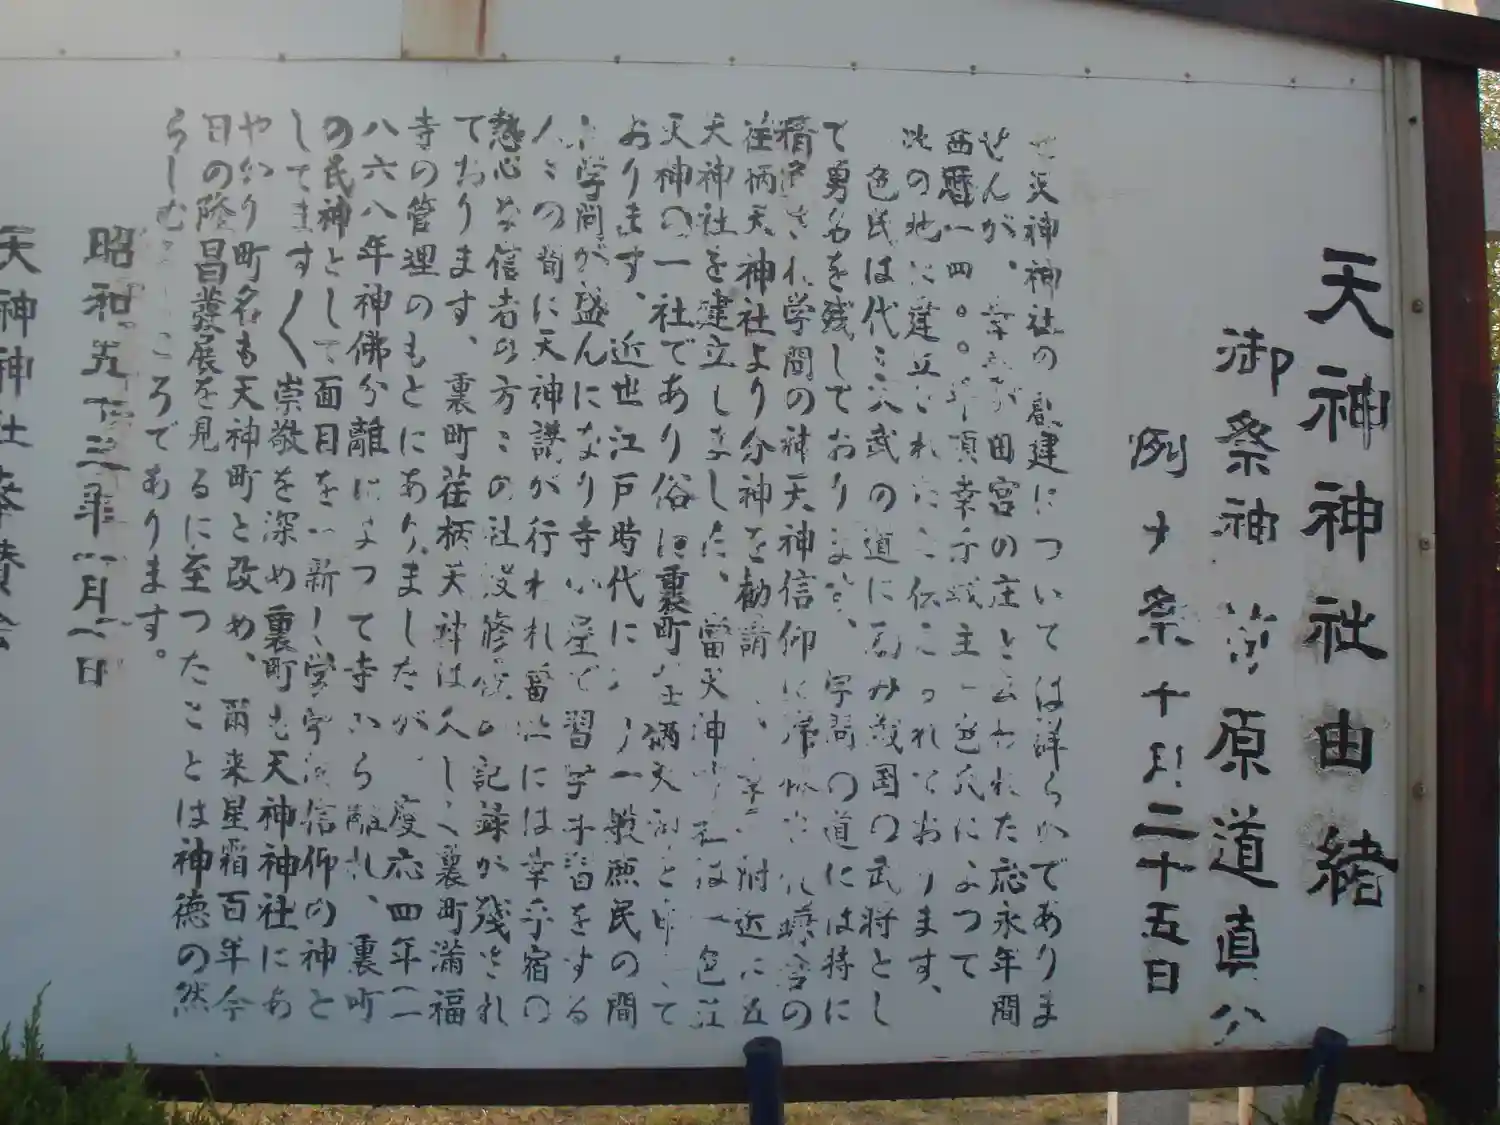 天神神社由緒
御祭神 菅原道真公
例大祭 十月二十五日
天神神社の創建については詳らかでありま
せんが、幸手が田宮の庄と云われた応永年間
西暦一四〇〇年頃幸手城主一色氏によつて
此の地に建立されたと伝えられております。
一色氏は代々武の道に励み戦国の武将とし
て勇名を残しております、学問の道には特に
精進され学問の神天神信仰に帰依され鎌倉の
荏柄天神社より分神を勧請し、幸手附近に五
天神社を建立しました、当天神神社は一色五
天神の一社であり俗に裏町荏柄天神と申して
おります、近世江戸時代に入り一般庶民の間
に学問が盛んになり寺小屋で習字学習をする
人々の間に天神講が行われ当社には幸手宿の
熱心な信者の方々の社殿修復の記録が残され
ております、裏町荏柄天神は久しく裏町満福
寺の管理のもとにありましたが、慶応四年一
八六八年神佛分離によつて寺から離れ、裏町
の民神として面目を一新し学問信仰の神と
してますく崇敬を深め裏町も天神神社にあ
やかり町名も天神町と改め、爾来星霜百年今
日の隆昌発展を見るに至つたことは神徳の然
らしむところであります。
昭和五十三年一月一日
天神神社奉賛会